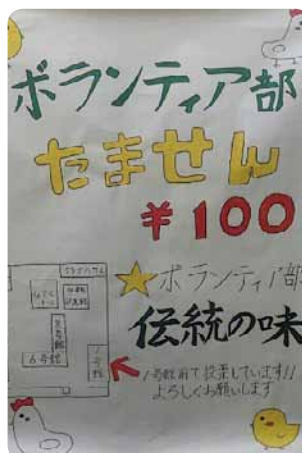 ボランティア部
たません
¥100
★ボランティア部
伝統の味
1号館前で授業しています!!
よろしくお願いします
6号館
1号館